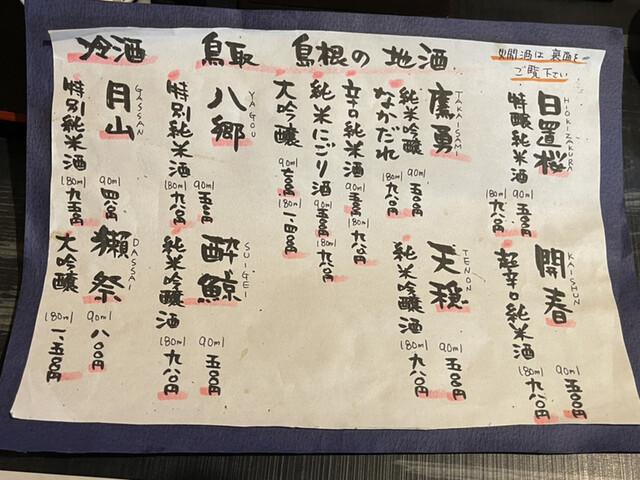 冷酒 鳥取 島根の地酒
火間酒は裏面を
ご覧下さい
HIOKIZAKURA
日置桜
特醸純米酒
90ml 五〇〇円
180ml 九八〇円
KAISHUN
開春
超辛口純米酒
90ml 五〇〇円
180ml 九八〇円
TAKAISAMI
鷹勇
純米吟醸
なかだれ
90ml 五〇〇円
180ml 九八〇円
辛口純米酒
90ml 五〇〇円
180ml 九八〇円
純米にごり酒
90ml 五〇〇円
180ml 九八〇円
大吟醸
90ml 七〇〇円
180ml 一、四〇〇円
TENON
天穏
純米吟醸酒
90ml 五〇〇円
180ml 九八〇円
YAGOU
八郷
特別純米酒
90ml 五〇〇円
180ml 九八〇円
SUIGEI
酔鯨
純米吟醸酒
90ml 五〇〇円
180ml 九八〇円
GASSAN
月山
特別純米酒
90ml 四八〇円
180ml 九五〇円
DASSAI
獺祭
大吟醸
90ml 八〇〇円
180ml 一、五〇〇円